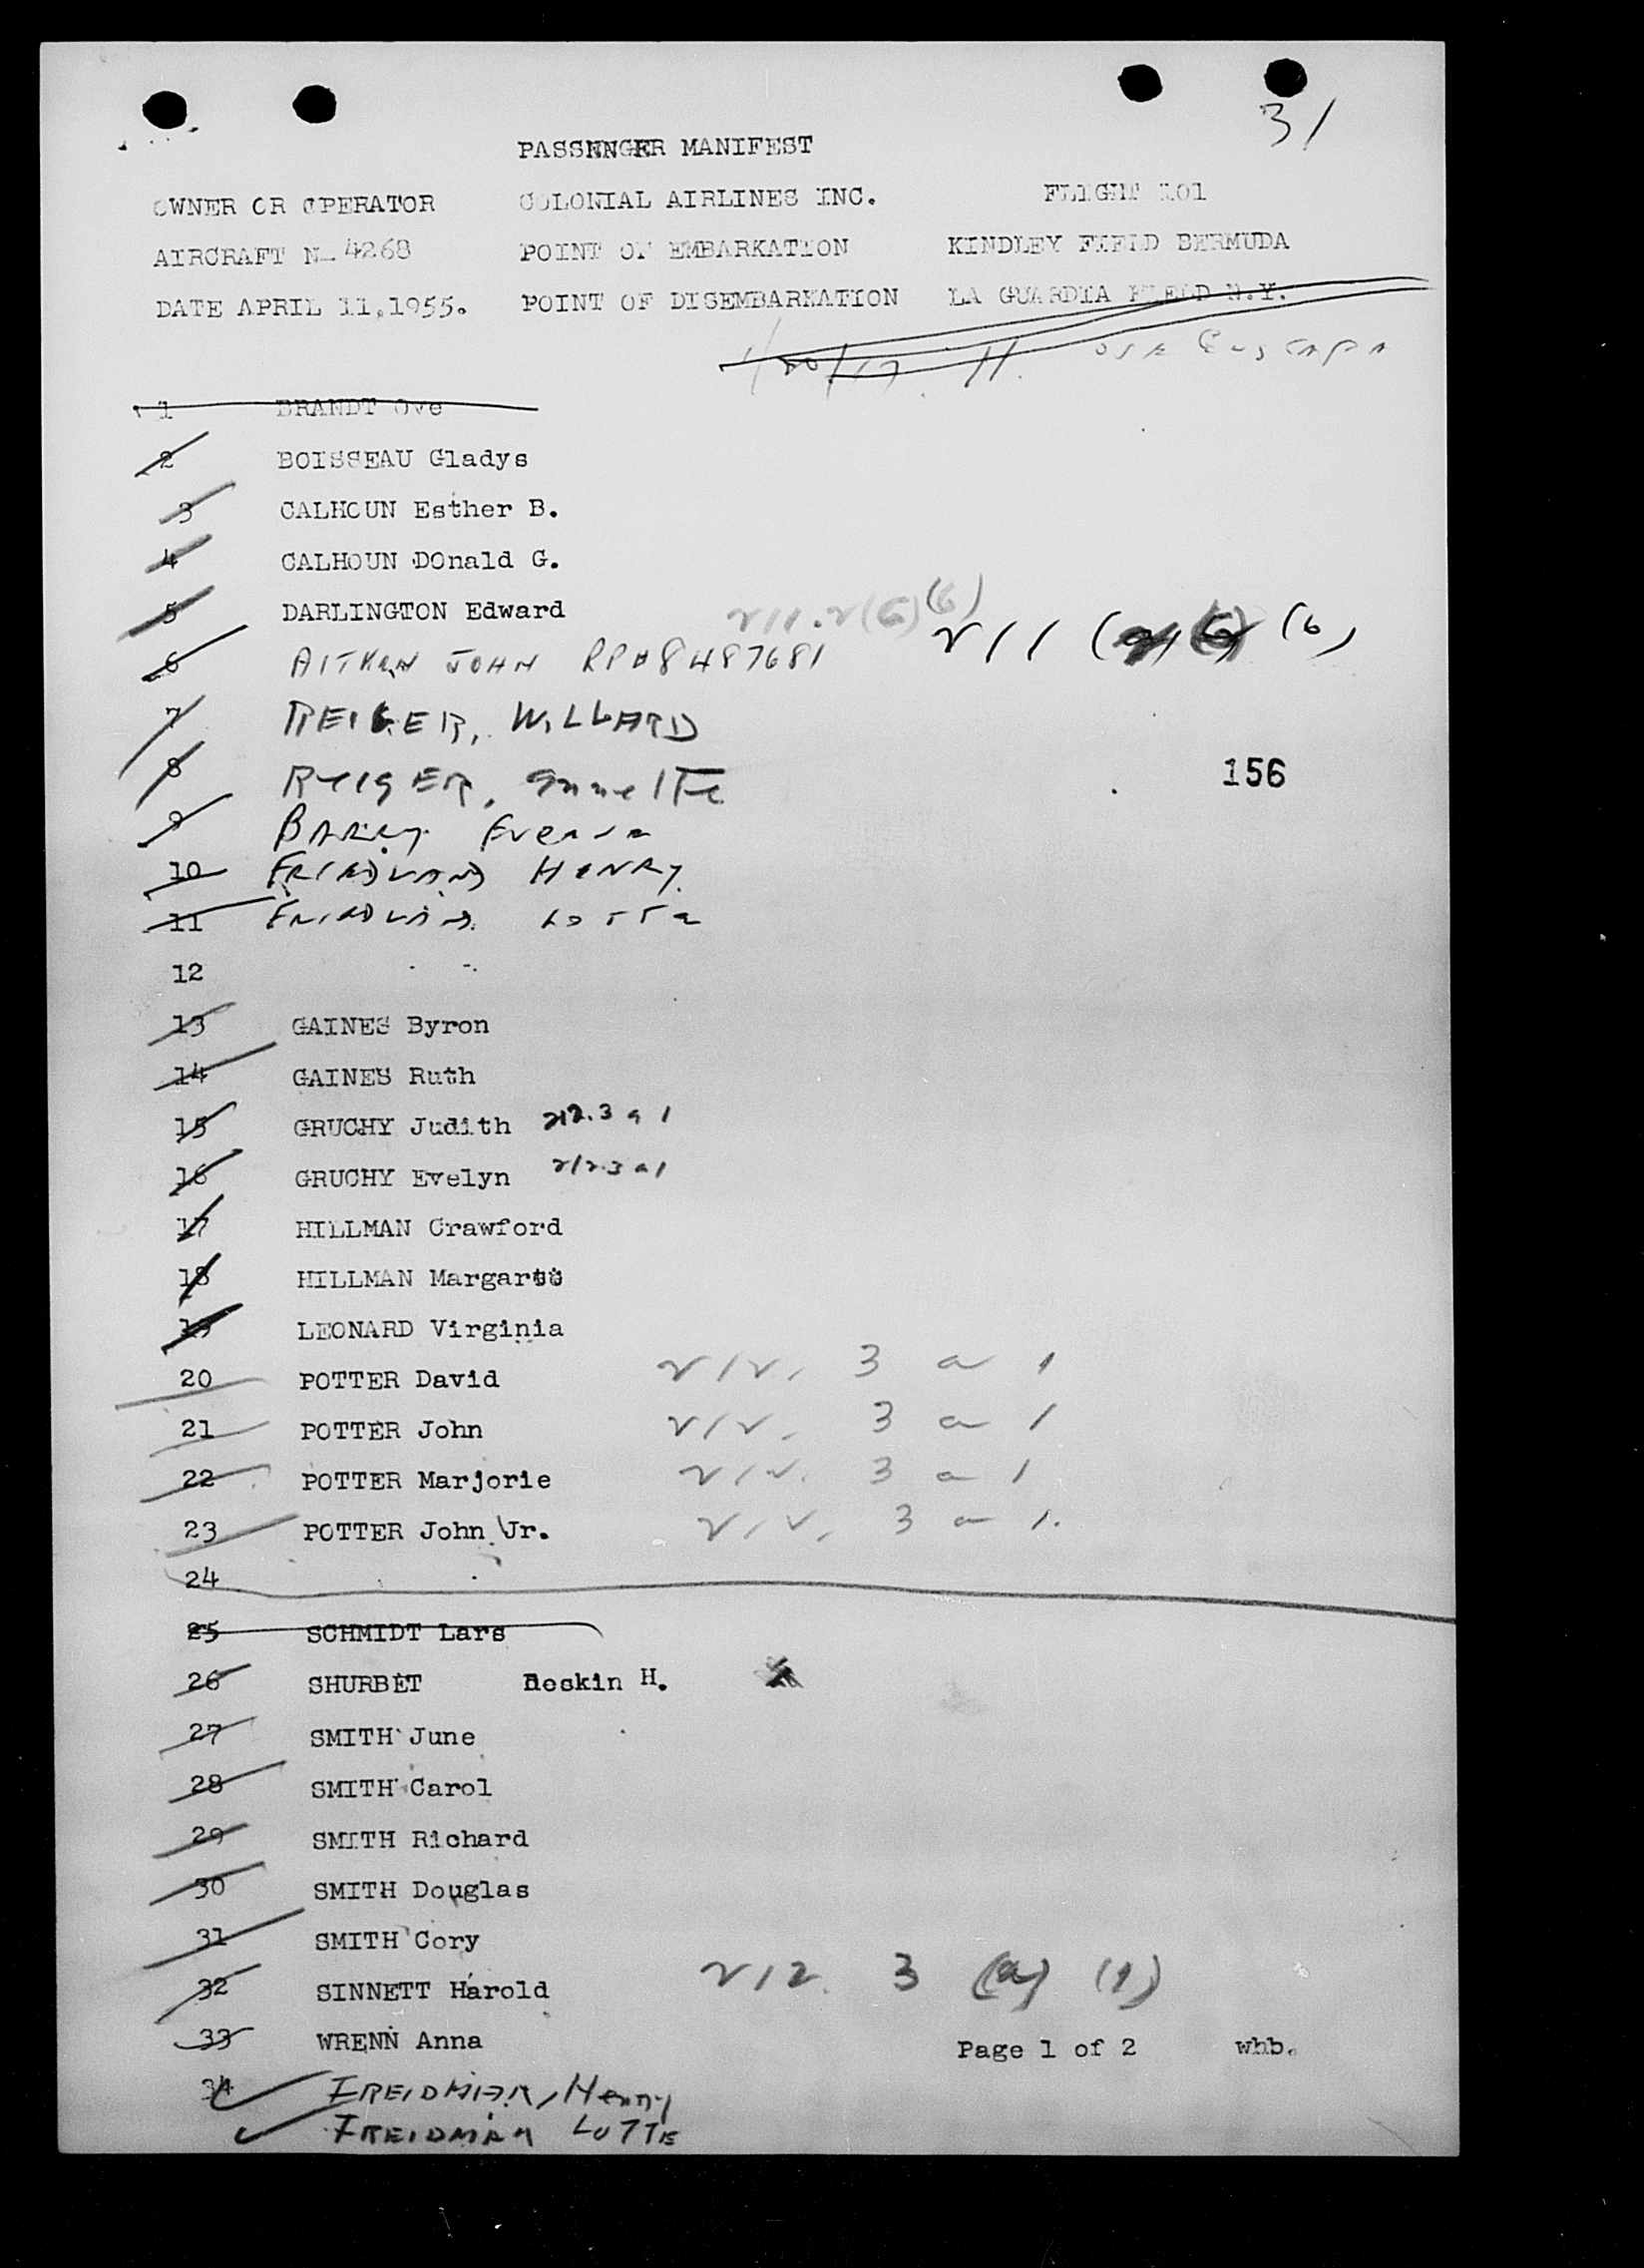 31
PASSENGER MANIFEST
OWNER OR OPERATOR COLONIAL AIRLINES INC. FLIGHT 101
AIRCRAFT N 4268 POINT OF EMBARKATION KINDLEY FIELD BERMUDA
DATE APRIL 11,1955. POINT OF DISEMBARKATION LA GUARDIA FIELD N.Y.
1 BRANDT Ove
2 BOISSEAU Gladys
3 CALHOUN Esther B.
4 CALHOUN DOnald G.
5 DARLINGTON Edward 211.2(6)(6)
6 AITKEN JOHN RP#8487681 211 (6)
7 REIGER, WILLARD
8 REIGER, Annette
156
9 BARRY
10 HENRY
11 LOTTE
12
13 GAINES Byron
14 GAINES Ruth
15 GRUCHY Judith 212.3 a 1
16 GRUCHY Evelyn 212.3 a 1
17 HILLMAN Crawford
18 HILLMAN
19 LEONARD Virginia
20 POTTER David 212. 3 a 1
21 POTTER John 212. 3 a 1
22 POTTER Marjorie 212. 3 a 1
23 POTTER John Jr. 212. 3 a 1.
24
25 SCHMIDT Lars
26 SHURBET H.
27 SMITH June
28 SMITH Carol
29 SMITH Richard
30 SMITH Douglas
31 SMITH Cory
32 SINNETT Harold 212. 3 (a) (1)
33 WRENN Anna Page 1 of 2 whb.
34 FREIDMAN, Henry
FREIDMAN LOTTE